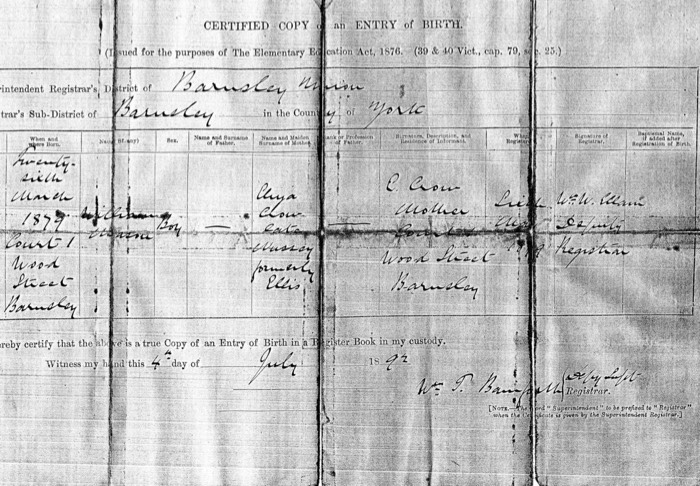 CERTIFIED COPY of an ENTRY of BIRTH.
(Issued for the purposes of The Elementary Education Act, 1876. (39 & 40 Vict., cap. 79, s. 25.)
intendent Registrar's District of Barnsley Union
trar's Sub-District of Barnsley in the County of York
When and where Born. Name (if any) Sex. Name and Surname of Father. Name and Maiden Surname of Mother. Rank or Profession of Father. Surname, Description, and Residence of Informant. When Registered Signature of Registrar. Baptismal Name, if added after Registration of Birth.
Twenty-
sixth
March
1879
Court 1
Wood
Street
Barnsley
William
Boy
—
Eliza
Crow
late
formerly
Ellis
—
E. Crow
Mother
Wood Street
Barnsley
Deputy
Registrar
hereby certify that the above is a true Copy of an Entry of Birth in a Register Book in my custody.
Witness my hand this 4th day of July 1892
Wm T. Depy Supt
Registrar.
[NOTE.—The word "Superintendent" to be prefixed to "Registrar"
when the Certificate is given by the Superintendent Registrar.]